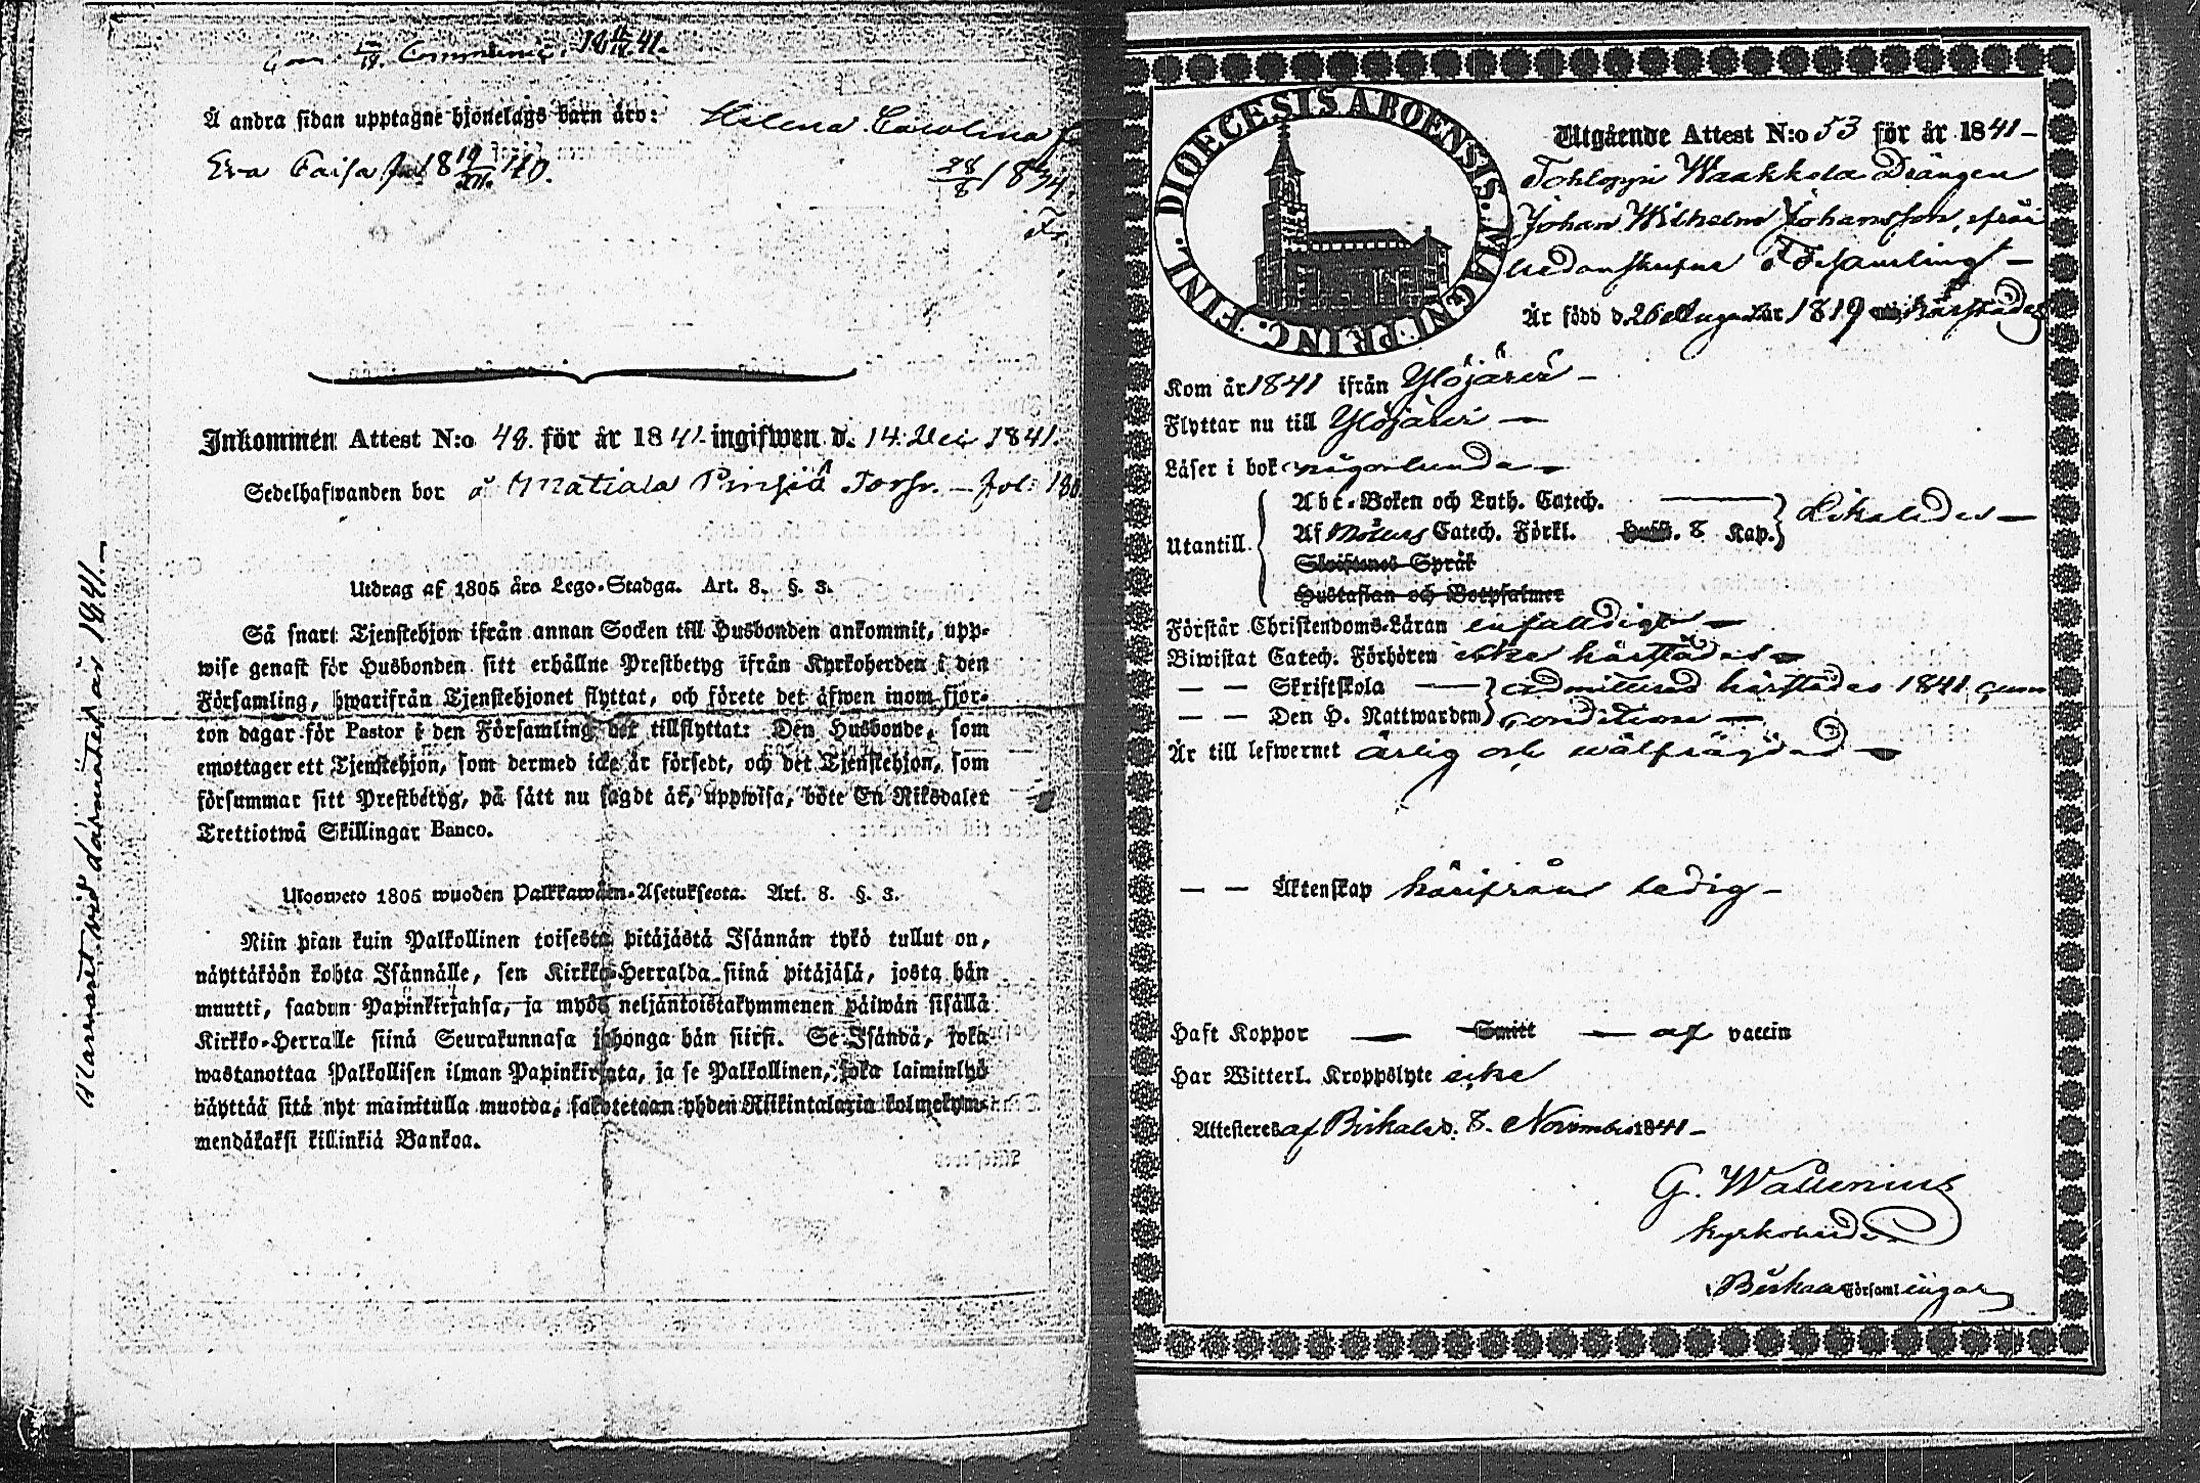 Commuinic. 18 41.
Å andra sidan upptagne hjonelags barn äro: Helena Carolina
Eva Caisa 18 19/XII. 40. 28/8 1834
Inkommen Attest N:o 48. för år 1841. ingifwen d. 14. Maj 1841.
Sedelhafwanden bor å Matiala Pinsiö Torp. — fol: 180
Utdrag af 1805 års Lego-Stadga. Art. 8. §. 3.
Så snart Tjenstehjon ifrån annan Socken till Husbonden ankommit, upp-
wise genast för Husbonden sitt erhållne Prestbetyg ifrån Kyrkoherden i den
Församling, hwarifrån Tjenstehjonet flyttat, och förete det äfwen inom fjor-
ton dagar för Pastor i den Församling det tillflyttat: Den Husbonde, som
emottager ett Tjenstehjon, som dermed icke är försedt, och det Tjenstehjon, som
försummar sitt Prestbetyg, på sätt nu sagdt är, uppwisa, böte En Riksdaler
Trettiotwå Skillingar Banco.
Ulosweto 1805 wuoden Palkkawäen-Asetuksesta. Art. 8. §. 3.
Niin pian kuin Palkollinen toisesta pitäjästä Isännän tykö tullut on,
näyttäköön kohta Isännälle, sen Kirkko-Herralda siinä pitäjäsä, josta hän
muutti, saadun Papinkirjansa, ja myös neljäntoistakymmenen päiwän sisällä
Kirkko-Herralle siinä Seurakunnasa johonga hän siirsi. Se Isändä, joka
wastanottaa Palkollisen ilman Papinkirjata, ja se Palkollinen, joka laiminlyö
näyttää sitä nyt mainitulla muotoa, sakotetaan yhden Riikintalarin kolmekym-
mendäkaksi killinkiä Bankoa.
Närvarit vid Läsmötet år 1841.—
DIOECESIS ABOENSIS. MAGNI PRINC. FINL.
Utgående Attest N:o 53 för år 1841 —
Tohloppi Waakkola Drängen
Johan Wilhelm Johansson, ifrån
nedanskrefne Församling —
Är född d. 26 Augusti år 1819 härstädes
Kom år 1841 ifrån Ylöjärvi —
Flyttar nu till Ylöjärvi —
Läser i bok någorlunda —
Utantill. Abc-Boken och Luth. Catech. — Likaledes —
Af Möllers Catech. Förkl. Hufst. 8 Kap.
Skriftenes Språk
Hustaflan och Botpsalmer
Förstår Christendoms-Läran enfaldigt —
Biwistat Catech. Förhören icke härstädes —
— — Skriftskola — admitterad härstädes 1841 cum
— — Den H. Nattwarden conditione —
Är till lefwernet ärlig och wälfrägdad —
— — Äktenskap härifrån ledig —
Haft Koppor — Smitt — af vaccin
Har Witterl. Kroppslyte icke
Attesteres af Birkala d. 8. November 1841 —
G. Wallenius
Kyrkoherde
Birkala Församlingar